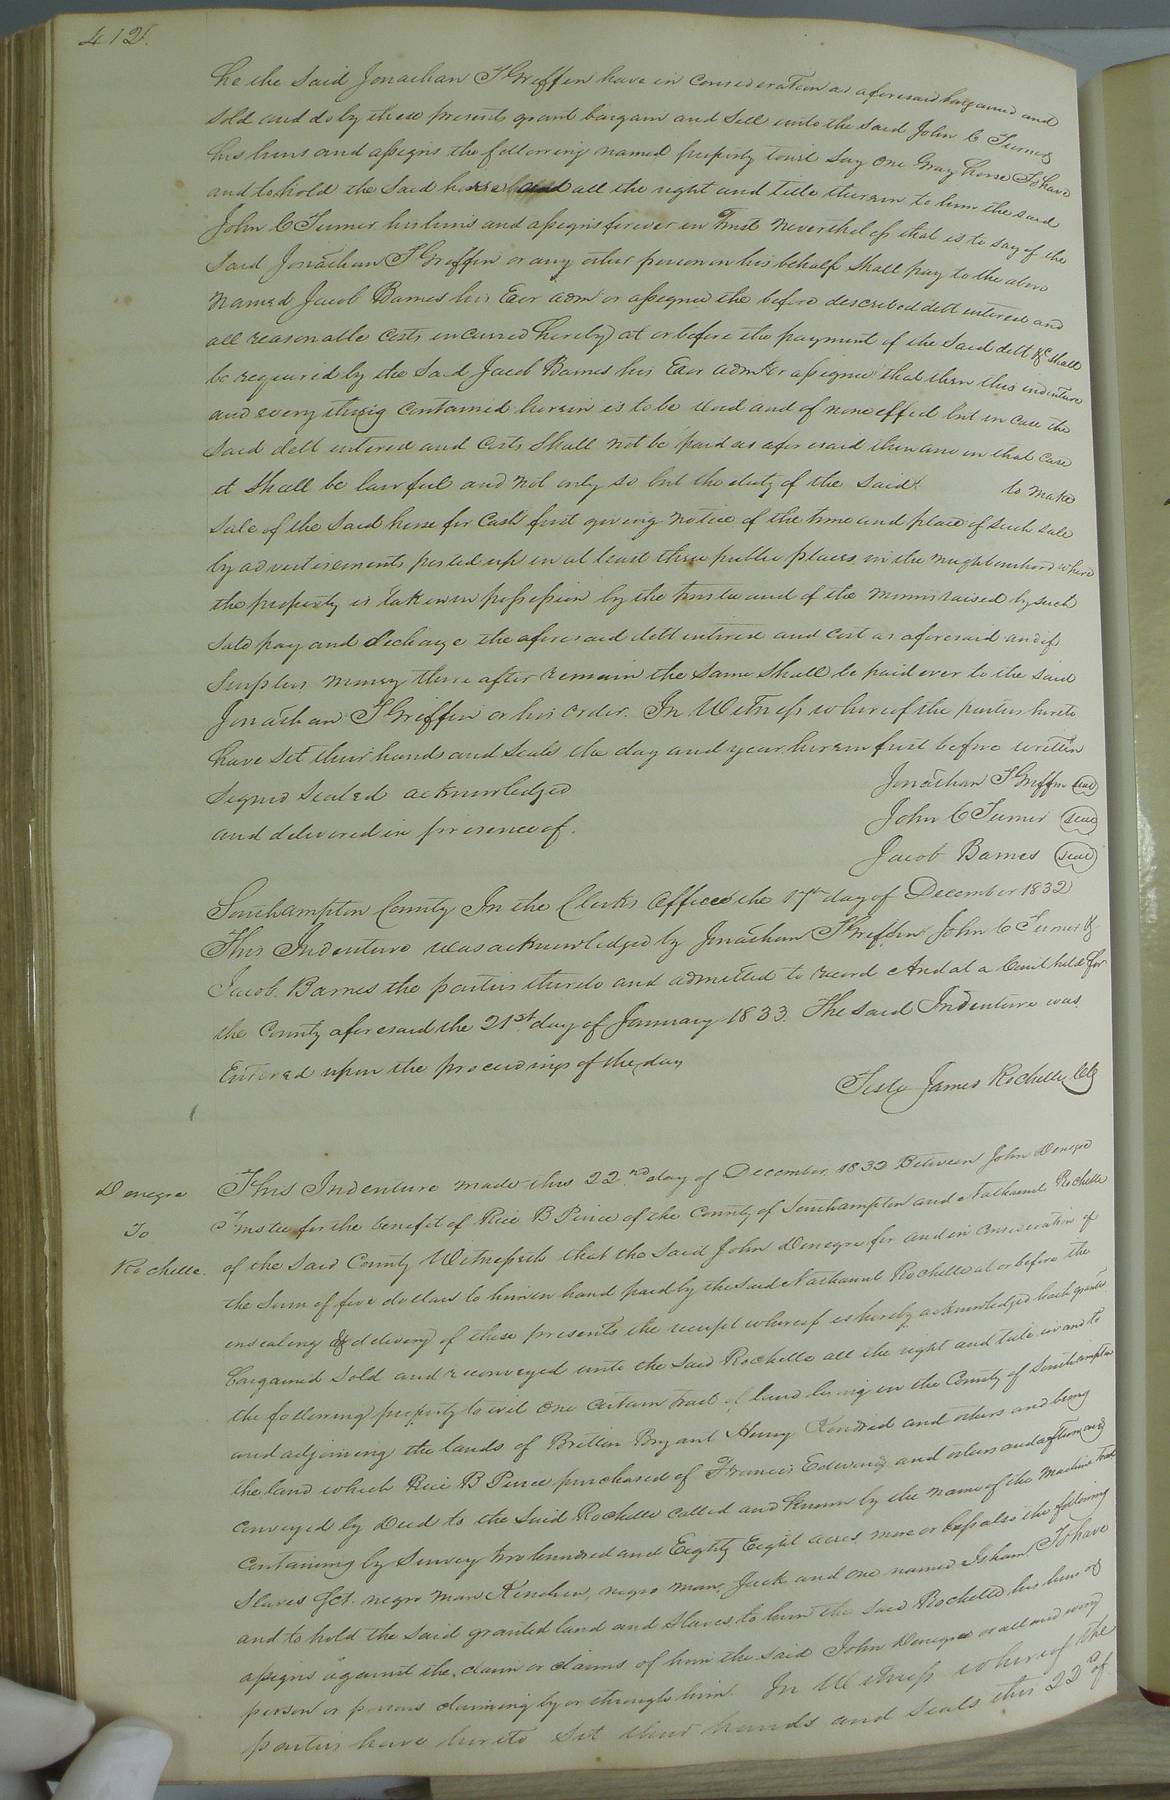 412.
he the said Jonathan T Griffen have in consideration as aforesaid bargained and
sold and do by these presents grant bargain and sell unto the said John C Turner
his heirs and assigns the following named property towit Say One Gray horse To have
and to hold the said horse and all the right and title therein to him the said
John C Turner his heirs and assigns forever in Trust Nevertheless that is to say if the
said Jonathan T Griffen or any other person on his behalf shall pay to the above
named Jacob Barnes his Exor admr or assignee the before described debt interest and
all reasonable costs incurred hereby at or before the payment of the said debt &c shall
be required by the said Jacob Barnes his Exor admr or assignee that then this indenture
and every thing contained herein is to be void and of none effect but in case the
said debt interest and costs shall not be paid as aforesaid then and in that case
it shall be lawful and not only so but the duty of the said to make
sale of the said horse for cash first giving notice of the time and place of such sale
by advertisements posted up in at least three public places in the neighbourhood where
the property is taken in possession by the trustee and of the monies raised by such
sale pay and discharge the aforesaid debt interest and cost as aforesaid and if
surplus money there after remain the same shall be paid over to the said
Jonathan T Griffen or his order. In Witness whereof the parties hereto
have set their hands and seals the day and year herein first before written
Signed Sealed acknowledged
and delivered in presence of.
Jonathan T Griffin seal
John C Turner seal
Jacob Barnes seal
Southampton County In the Clerks Office the 17th day of December 1832
This Indenture was acknowledged by Jonathan T Griffin John C Turner &
Jacob Barnes the parties thereto and admitted to record And at a Court held for
the County aforesaid the 21st day of January 1833. The said Indenture was
Entered upon the proceedings of the day
Teste James Rochelle Clk
Denegre
To
Rochelle.
This Indenture made this 22nd day of December 1832 Between John Denegre
Trustee for the benefit of Rice B Pierce of the County of Southampton and Nathaniel Rochelle
of the said County Witnesseth that the said John Denegre for and in consideration of
the sum of five dollars to him in hand paid by the said Nathaniel Rochelle at or before the
ensealing & delivery of these presents the receipt whereof is hereby acknowledged hath granted
bargained sold and reconveyed unto the said Rochelle all the right and title in and to
the following property to wit One certain tract of land lying in the County of Southampton
and adjoining the lands of Britten Bryant Henry Kindred and others and being
the land which Rice B Pierce purchased of Francis and others and afterwards
conveyed by Deed to the said Rochelle called and known by the name of the Machine tract
containing by Survey two hundred and Eighty Eight acres more or less also the following
Slaves Sct. negro man Kinchen, negro man, Jack and one named Isham. To have
and to hold the said granted land and slaves to him the said Rochelle his heirs or
assigns against the claim or claims of him the said John Denegre or all and every
person or persons claiming by or through him. In Witness whereof the
parties have hereto set their hands and seals this 22d of